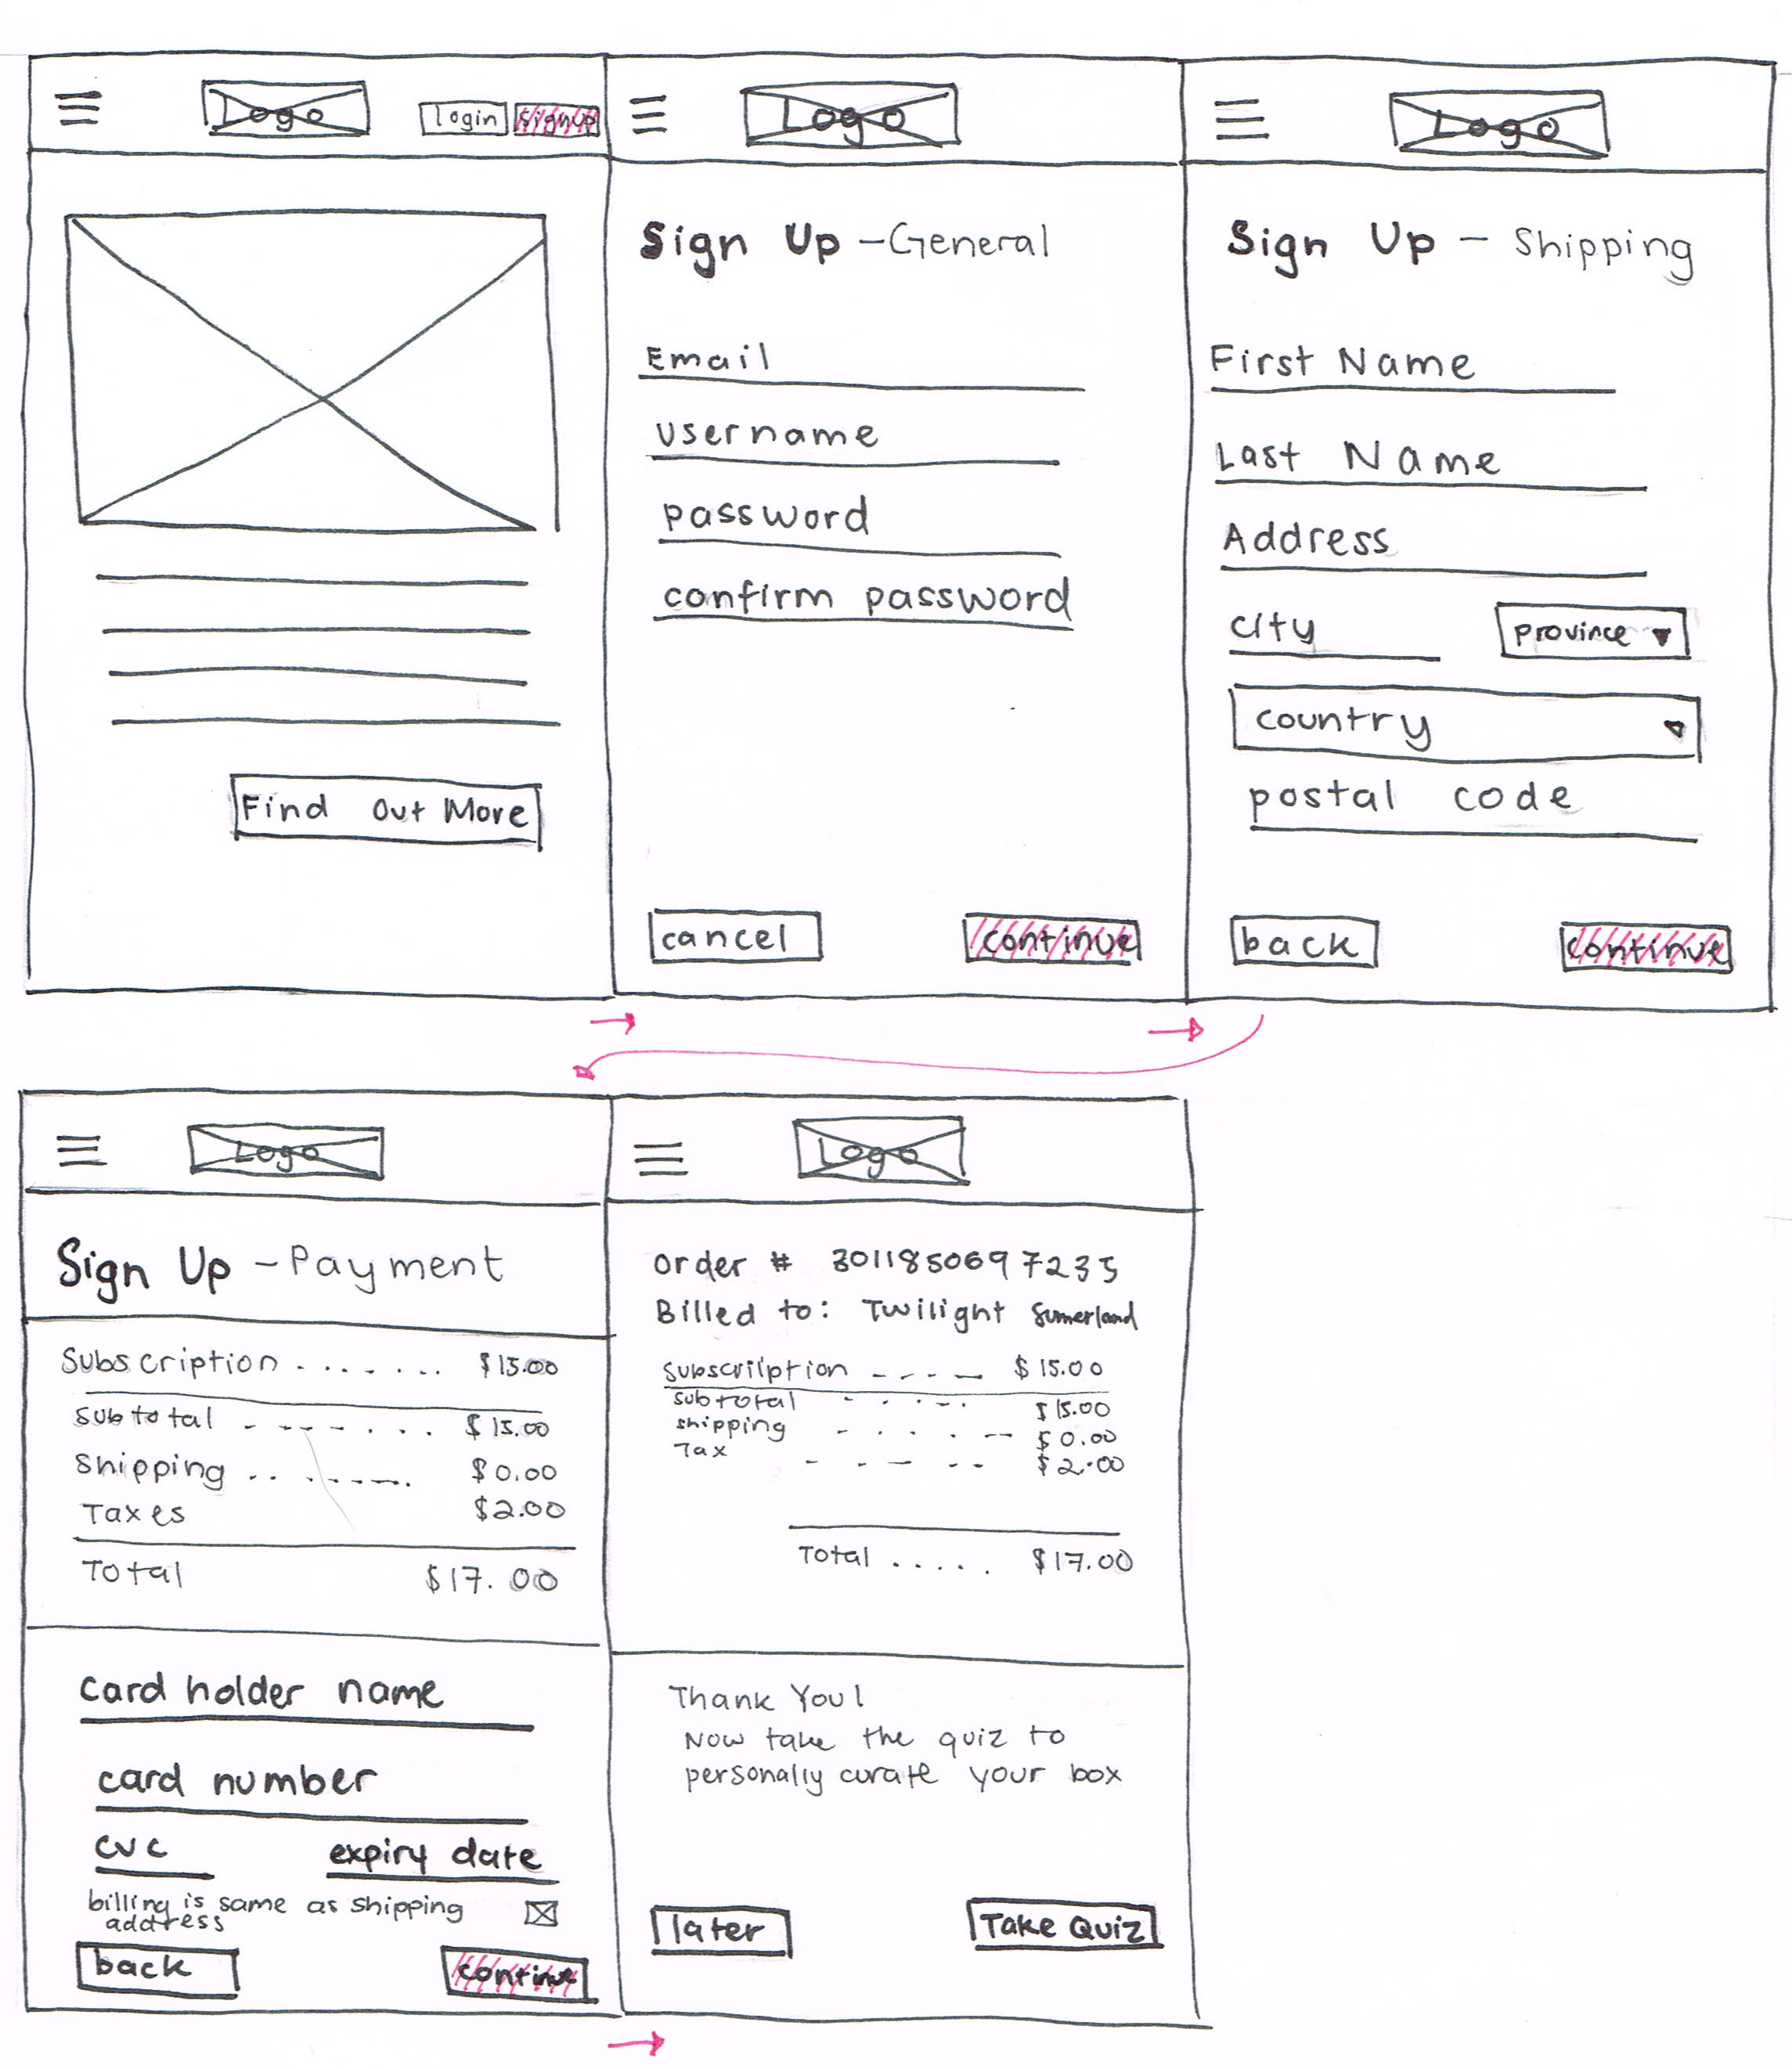 Logo
login
signup
Find Out More
Logo
Sign Up - General
Email
username
password
confirm password
cancel
continue
Logo
Sign Up - Shipping
First Name
Last Name
Address
city
province
country
postal code
back
continue
Logo
Sign Up - Payment
Subscription . . . . . . . . $15.00
subtotal - - - - . . . $15.00
Shipping . . . - - - . $0.00
Taxes $2.00
Total $17.00
card holder name
card number
cvc
expiry date
billing is same as shipping
address
back
continue
Logo
Order # 3011850697235
Billed to: Twilight Sumerland
Subscrilption - - - - $15.00
subtotal - . . . . $15.00
shipping - . . . . - $0.00
Tax - - - - - $2.00
Total . . . . . $17.00
Thank You!
Now take the quiz to
personally curate your box
later
Take Quiz